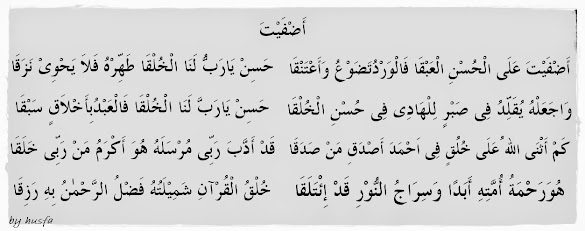 أَضْفَيْتَ
أَضْفَيْتَ عَلَى الْحُسْنِ الْعَبَقَا فَالْوَرْدُتَضَوَّعُ وَأَعْتَنَقَا حَسِّنْ يَارَبُّ لَنَا الْخُلُقَا طَهِّرْهُ فَلاَ يَحْوِىْ نَزَقَا
وَاجْعَلْهُ يُقَلِّدُ فِى صَبْرٍ لِلْهَادِى فِى حُسْنِ الْخُلُقَا حَسِّنْ يَارَبَّ لَنَا الْخُلُقَا فَالْعَبْدُبِأَخْلاَقٍ سَبَقَا
كَمْ أَثْنَى اللهُ عَلَى خُلُقٍ فِى اَحْمَدَ أَصْدَقِ مَنْ صَدَقَا قَدْ أَدَّبَ رَبِّى مُرْسَلَهُ هُوَ أَكْرَمُ مَنْ رَبِّى خَلَقَا
هُوَرَحْمَةُ أُمَّتِهِ أَبَدًا وَسِرَاجُ النُّوْرِ قَدْ اِئْتَلَقَا خُلْقُ الْقُرْآنِ شَمِيْلَتُهُ فَضْلُ الرَّحْمٰنُ بِهِ رَزِقَا
by husfa